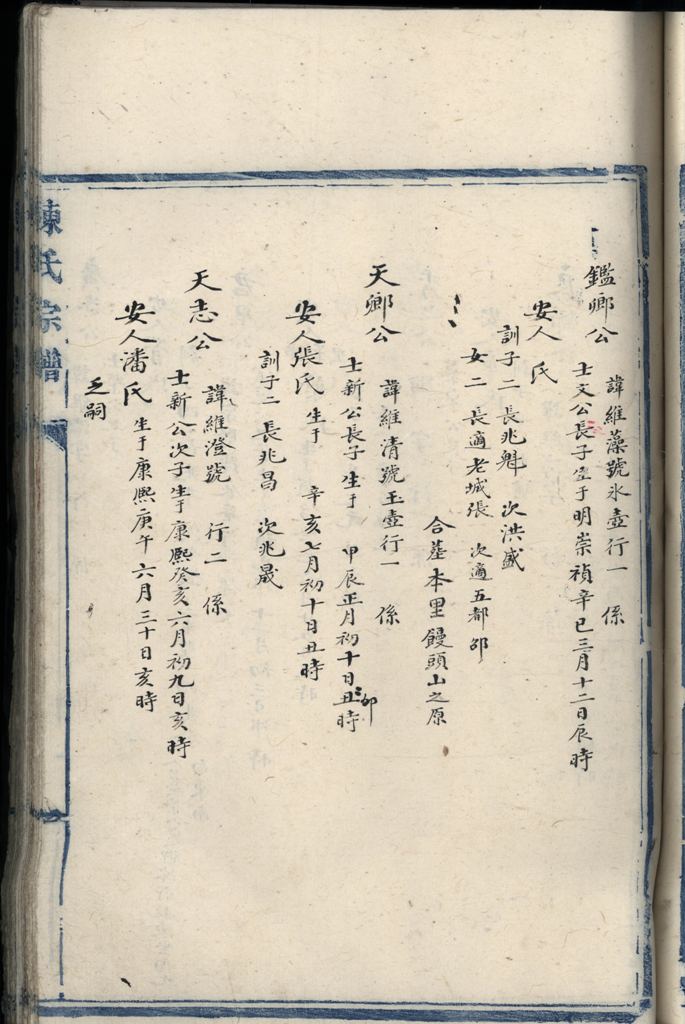 鑑卿公
諱維藻號氷壺行一 係
士文公長子生于明崇禎辛巳三月十二日辰時
安人 氏
訓子二 長兆魁 次洪盛
女二 長適老城張 次適五都邵
合塟本里饅頭山之原
天卿公
諱維清號玉壺行一 係
士新公長子生于 甲辰正月初十日丑時
安人張氏 生于 辛亥七月初十日丑時
訓子二 長兆昌 次兆晟
天志公
諱維澄號 行二 係
士新公次子生于康熙癸亥六月初九日亥時
安人潘氏 生于康熙庚午六月三十日亥時
乏嗣
陳氏宗譜